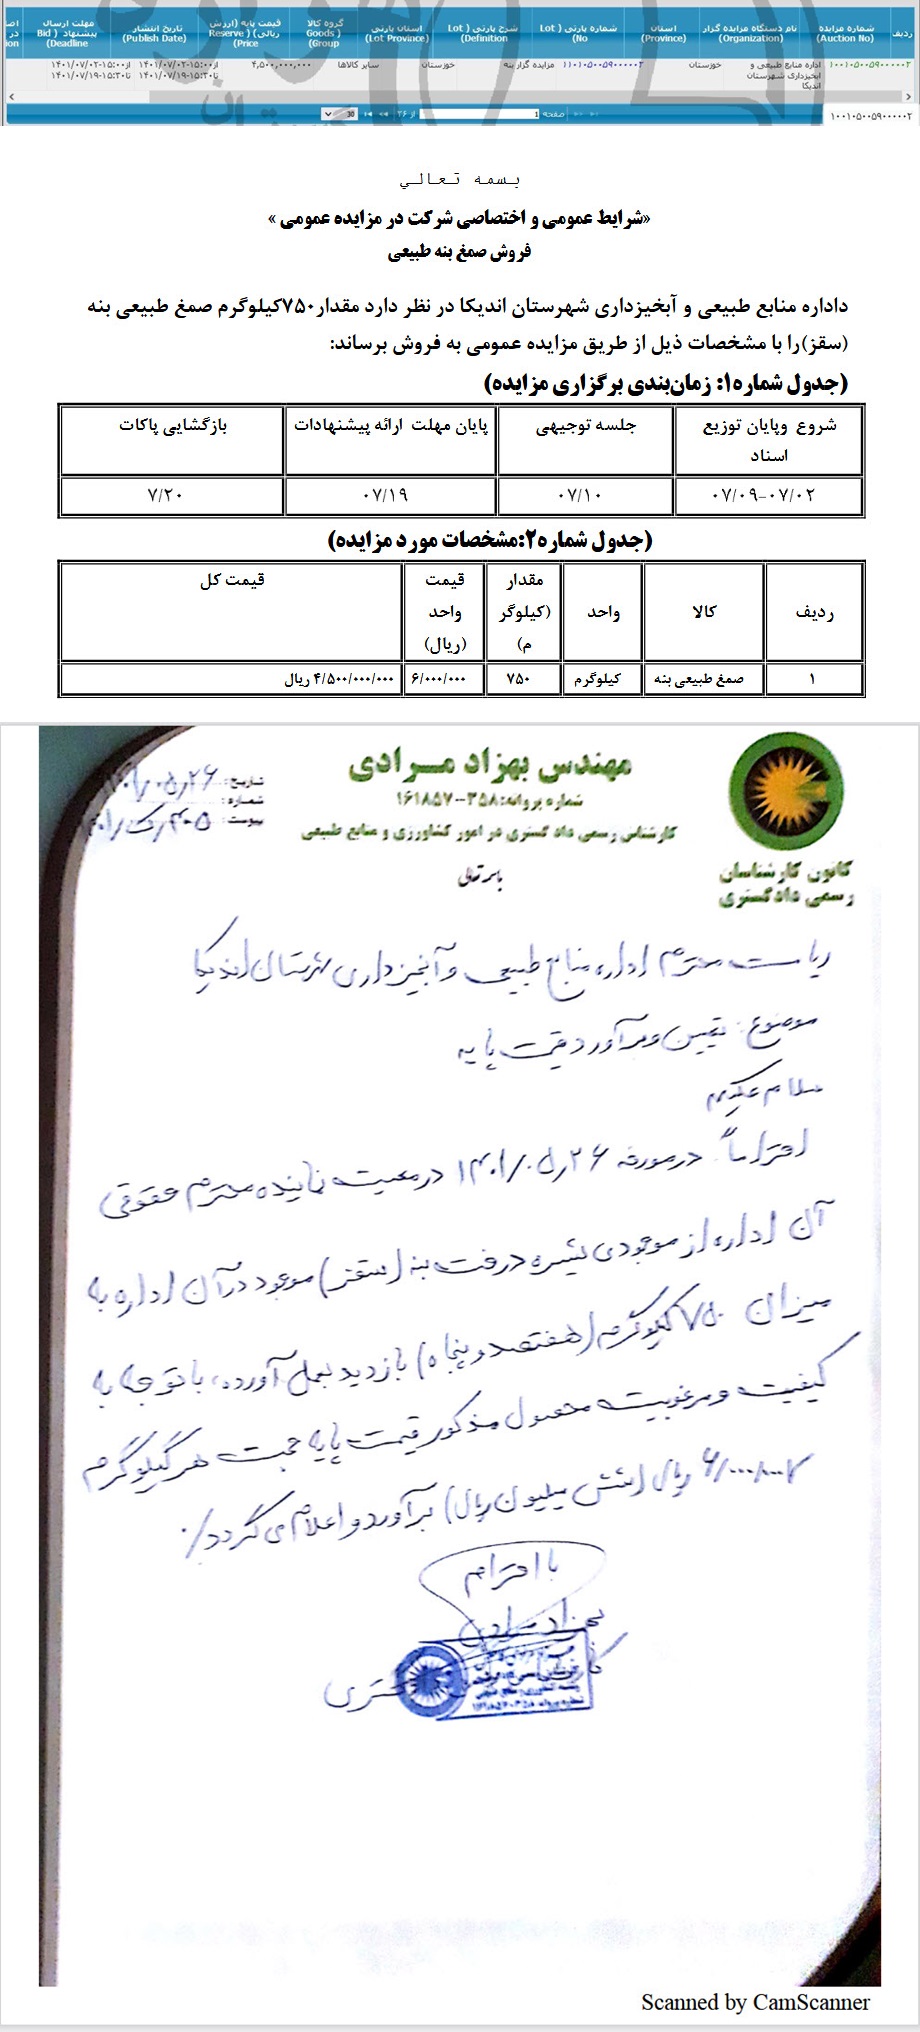 ردیف
شماره مزایده (Auction No)
نام دستگاه مزایده گزار (Organization)
استان (Province)
شماره پارتی (Lot No)
شرح پارتی (Lot Definition)
استان پارتی (Lot Province)
گروه کالا (Goods Group)
قیمت پایه (ارزش ریالی) (Reserve Price)
تاریخ انتشار (Publish Date)
مهلت ارسال پیشنهاد (Bid Deadline)
۱۰۰۱۰۵۰۰۵۹۰۰۰۰۰۲
اداره منابع طبیعی و ابخیزداری شهرستان اندیکا
خوزستان
۱۱۰۱۰۵۰۰۵۹۰۰۰۰۰۲
مزایده گزار بنه
خوزستان
سایر کالاها
۴,۵۰۰,۰۰۰,۰۰۰
از۱۵:۰۰-۱۴۰۱/۰۷/۰۲
تا۱۵:۳۰-۱۴۰۱/۰۷/۱۹
از۱۵:۰۰-۱۴۰۱/۰۷/۰۲
تا۱۵:۳۰-۱۴۰۱/۰۷/۱۹
صفحه 1 از ۲۶ 30
۱۰۰۱۰۵۰۰۵۹۰۰۰۰۰۲
بسمه تعالي
«شرایط عمومی و اختصاصی شرکت در مزایده عمومی »
فروش صمغ بنه طبیعی
داداره منابع طبیعی و آبخیزداری شهرستان اندیکا در نظر دارد مقدار۷۵۰کیلوگرم صمغ طبیعی بنه
(سقز)را با مشخصات ذیل از طریق مزایده عمومی به فروش برساند:
(جدول شماره۱: زمان‌بندی برگزاری مزایده)
شروع وپایان توزیع اسناد
جلسه توجیهی
پایان مهلت ارائه پیشنهادات
بازگشایی پاکات
۰۷/۰۹-۰۷/۰۲
۰۷/۱۰
۰۷/۱۹
۷/۲۰
(جدول شماره۲:مشخصات مورد مزایده)
ردیف
کالا
واحد
مقدار (کیلوگرم)
قیمت واحد (ریال)
قیمت کل
۱
صمغ طبیعی بنه
کیلوگرم
۷۵۰
۶/۰۰۰/۰۰۰
۴/۵۰۰/۰۰۰/۰۰۰ ریال
مهندس بهزاد مرادی
شماره پروانه:۳۵۸--۱۶۱۸۵۷
کارشناس رسمی دادگستری در امور کشاورزی و منابع طبیعی
کانون کارشناسان
رسمی دادگستری
تاریخ:
شماره:
پیوست:
باسمه تعالی
ریاست محترم اداره منابع طبیعی و آبخیزداری شهرستان اندیکا
موضوع: تعیین و برآورد قیمت پایه
سلام علیکم
احتراماً در مورخه ۱۴۰۱/۰۵/۲۶ در معیت نماینده محترم حقوقی
آن اداره از موجودی شیره درخت بنه (سقز) موجود در آن اداره به
میزان ۷۵۰ کیلوگرم (هفتصد و پنجاه) بازدید بعمل آورده، با توجه به
کیفیت و مرغوبیت محصول مذکور قیمت پایه جهت هر کیلوگرم
۶/۰۰۰/۰۰۰ ریال (شش میلیون ریال) برآورد و اعلام می گردد./
با احترام
بهزاد مرادی
Scanned by CamScanner